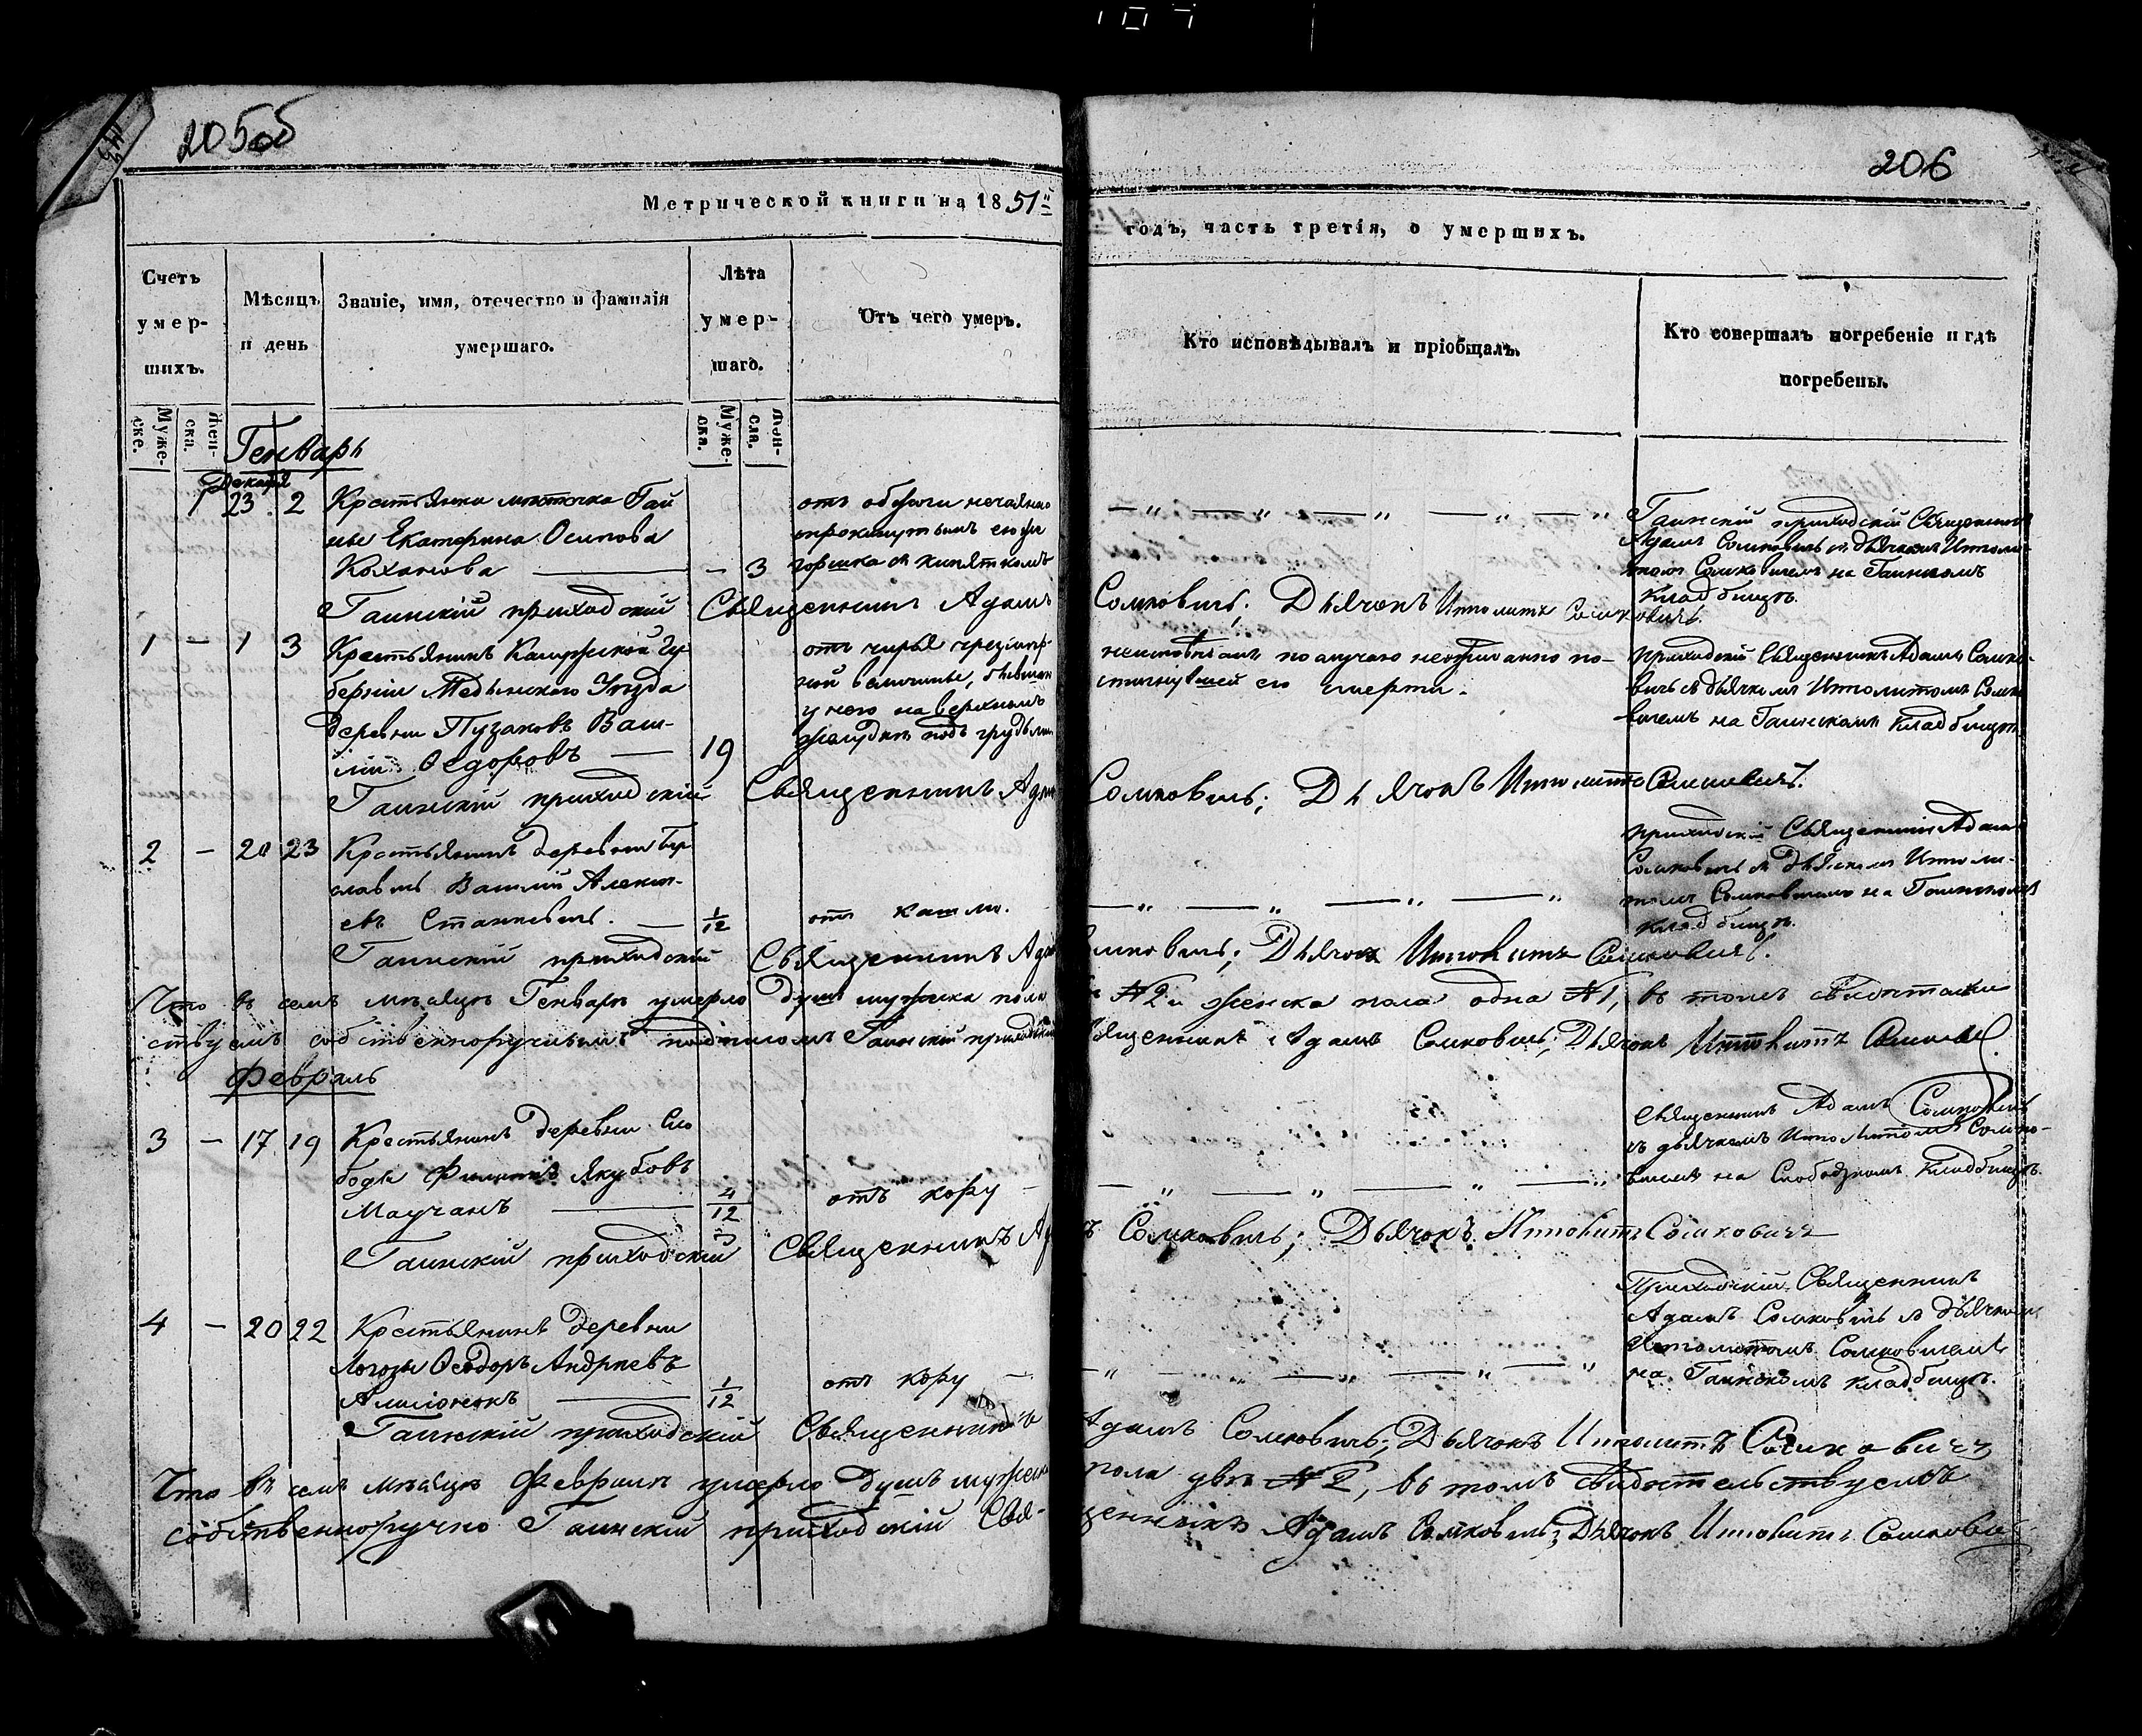 205об
206
Метрической книги на 1851й
годъ, часть третія, о умершихъ.
Счетъ умер-шихъ.
Мѣсяцъ и день
Званіе, имя, отечество и фамилія умершаго.
Лѣта умер-шаго.
Отъ чего умеръ.
Кто исповѣдывалъ и пріобщалъ.
Кто совершалъ погребеніе и гдѣ погребены.
Муже-ска.
Жен-ска.
Муже-ска.
Жен-ска.
Генварь
Декабря
1 23 2
Крестьянка мѣстечка Гай
ны Екатерина Осипова
Коханова — — 3
отъ нечаянно
опрокинутымъ ею
горшка съ кипяткомъ
— „ — „ — „ — „ — „
Гаинскій приходскій Священникъ
Адамъ Сомковичь съ дьячкомъ Ипполи-
томъ Сомковичемъ на Гаинскомъ
кладбищѣ.
Гаинскій приходскій Священникъ Адамъ Сомковичь; Дьячокъ Ипполитъ Сомковичь.
1 — 1 3
Крестьянинъ Калужской Гу
берніи Медынскаго Уѣзда
деревни Пузаковъ Васи-
лій Ѳедоровъ — 19
отъ чирья чрезмѣр-
ной величины, бывшаго
у него на верхнемъ
желудкѣ подъ грудьми
неисповѣданъ по случаю неожиданно по-
стигнувшей его смерти.
приходскій Священникъ Адамъ Сомко-
вичь съ дьячкомъ Ипполитомъ Сомко
вичемъ на Гаинскомъ кладбищѣ
Гаинскій приходскій Священникъ Адамъ Сомковичь; Дьячокъ Ипполитъ Сомковичь.
2 — 20 23
Крестьянинъ деревни
Василій Алексѣ-
евъ Станкевичь. — 1/12
отъ кашлю.
— „ — „ — „ — „
приходскій Священникъ Адамъ
Сомковичь съ дьячкомъ Ипполи-
томъ Сомковичемъ на Гаинскомъ
кладбищѣ.
Гаинскій приходскій Священникъ Адамъ Сомковичь; Дьячокъ Ипполитъ Сомковичь.
Что въ семъ мѣсяцѣ Генварѣ умерло душъ мужска пола № 2 и женска пола одна № 1, въ томъ свидѣтель
ствуемъ собственноручнымъ подписомъ Гаинскій приходскій Священникъ Адамъ Сомковичь; Дьячокъ Ипполитъ Сомковичь.
Февраль
3 — 17 19
Крестьянинъ деревни Сло
боды Филиппъ Якубовъ
Маучанъ — 4/12
отъ кору —
— „ — „ — „ — „
Священникъ Адамъ Сомковичь
съ дьячкомъ Ипполитомъ Сомко-
вичемъ на Слободзкомъ кладбищѣ.
Гаинскій приходскій Священникъ Адамъ Сомковичь; Дьячокъ Ипполитъ Сомковичь
4 — 20 22
Крестьянинъ деревни
Логозы Ѳеодоръ Андреевъ
— 1/12
отъ кору —
— „ — „ — „ — „
Приходскій Священникъ
Адамъ Сомковичь съ дьячкомъ
Ипполитомъ Сомковичемъ
на Гаинскомъ кладбищѣ.
Гаинскій приходскій Священникъ Адамъ Сомковичь; Дьячокъ Ипполитъ Сомковичь
Что въ семъ мѣсяцѣ Февралѣ умерло душъ мужска пола двѣ № 2, въ томъ свидѣтельствуемъ
собственноручно Гаинскій приходскій Священникъ Адамъ Сомковичь; Дьячокъ Ипполитъ Сомкович